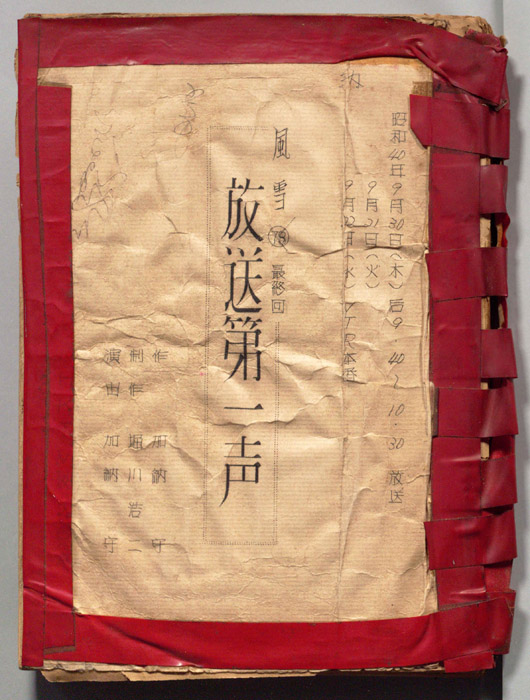 昭和40年9月30日(木)后9.40~10.30 放送
9月21日(火)
9月22日(水) VTR本番
風雪 78 最終回
放送第一声
作 加納 守
制作 堀川 浩二
演出 加納 守